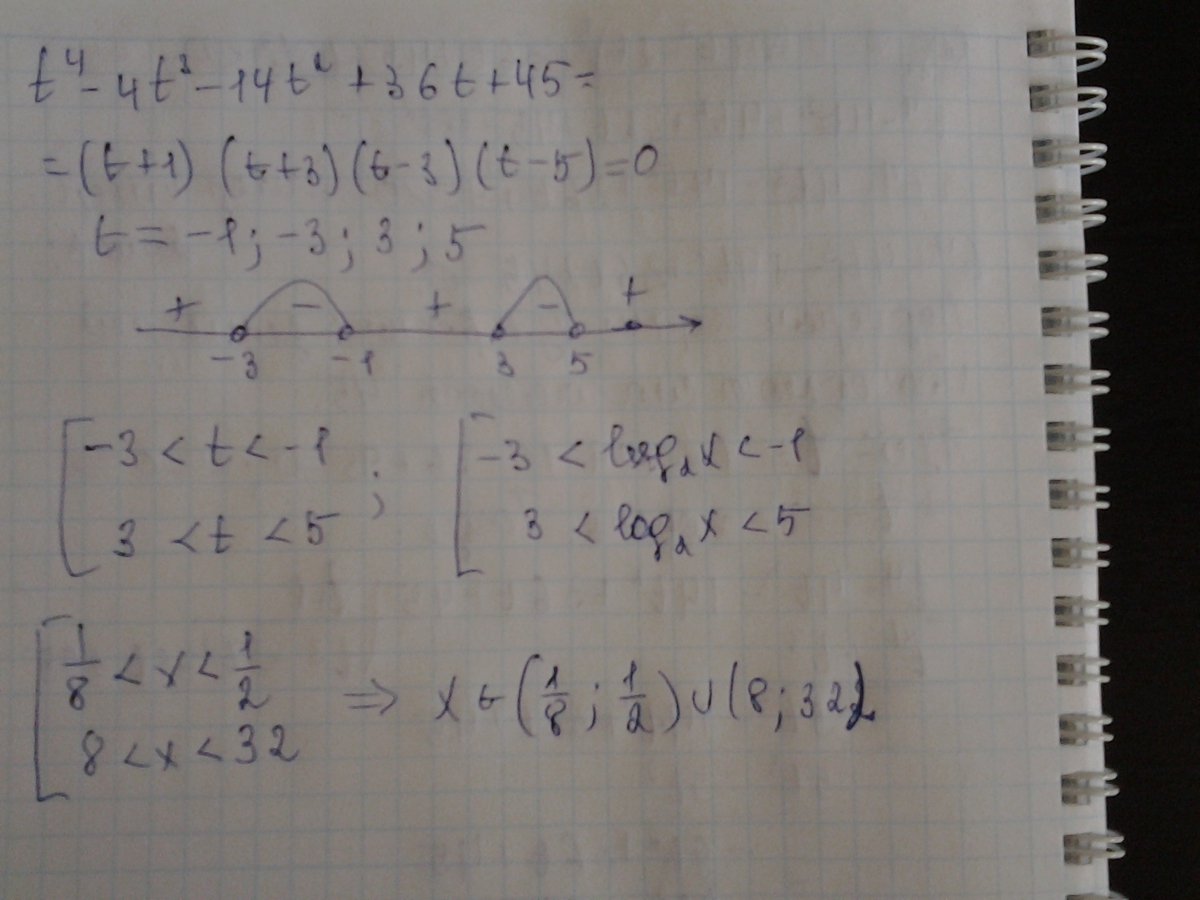 t⁴ - 4t³ - 14t² + 36t + 45 =
= (t+1) (t+3) (t-3) (t-5) = 0
t = -1; -3; 3; 5
+ - + - +
-3 -1 3 5
[ -3 < t < -1 ; [ -3 < log₂x < -1
3 < t < 5 3 < log₂x < 5
[ 1/8 < x < 1/2
8 < x < 32 ⇒ x ∈ (1/8; 1/2) ∪ (8; 32)